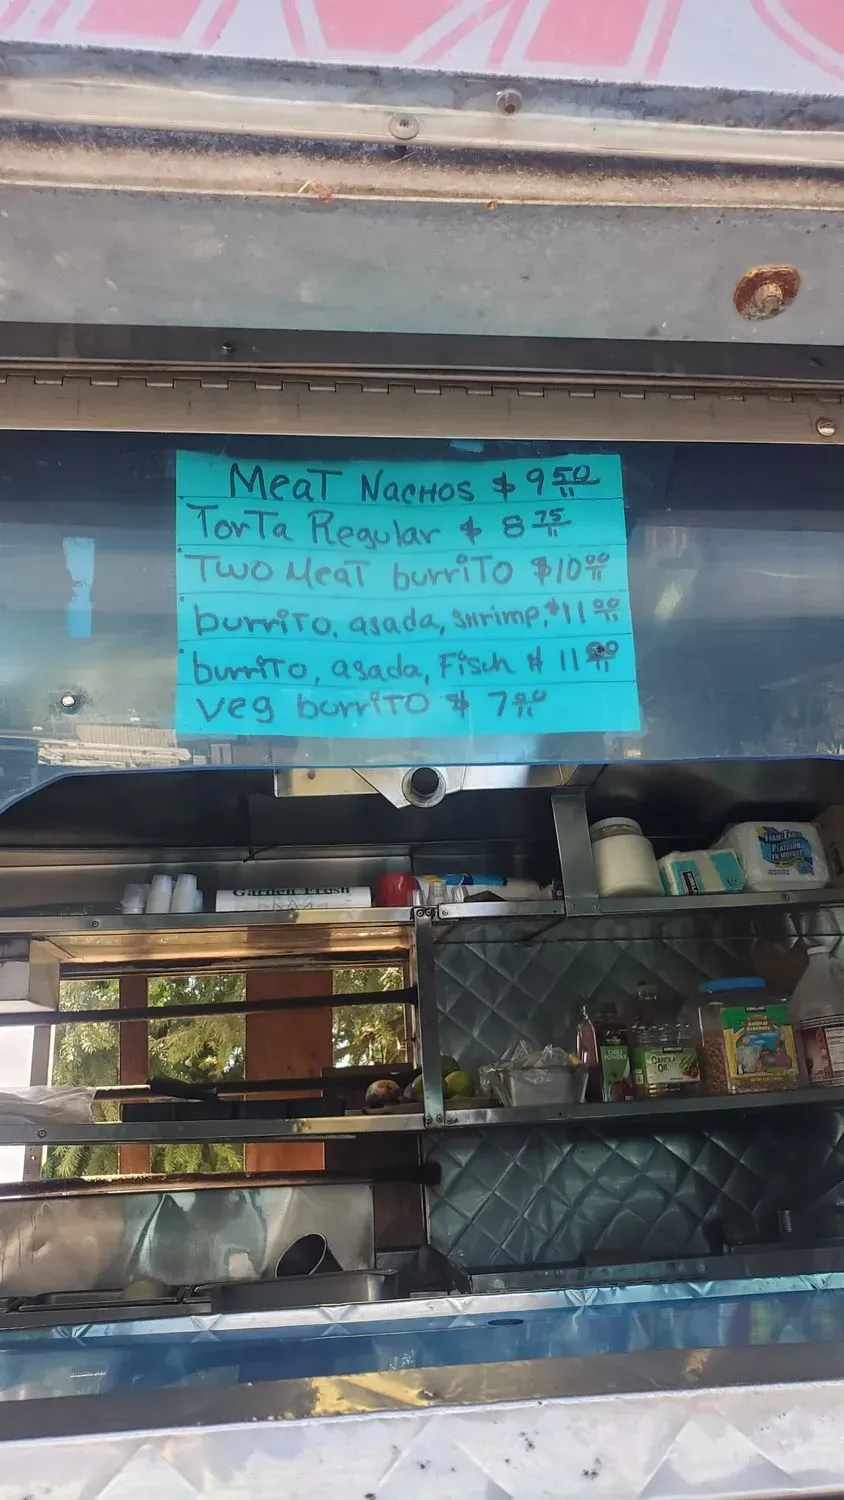 MeaT Nachos $ 9 50
TorTa Regular $ 8 75
Two MeaT burriTo $10 00
burriTo, asada, shrimp, $11 00
burriTo, asada, Fisch $ 11 00
veg burriTo $ 7 00
Garden Fresh
CHILI
POWDER
KIRKLAND
CANOLA
OIL
KIRKLAND
Animal
Crackers
FOAM
PLATEAUX
EN MOUSSE